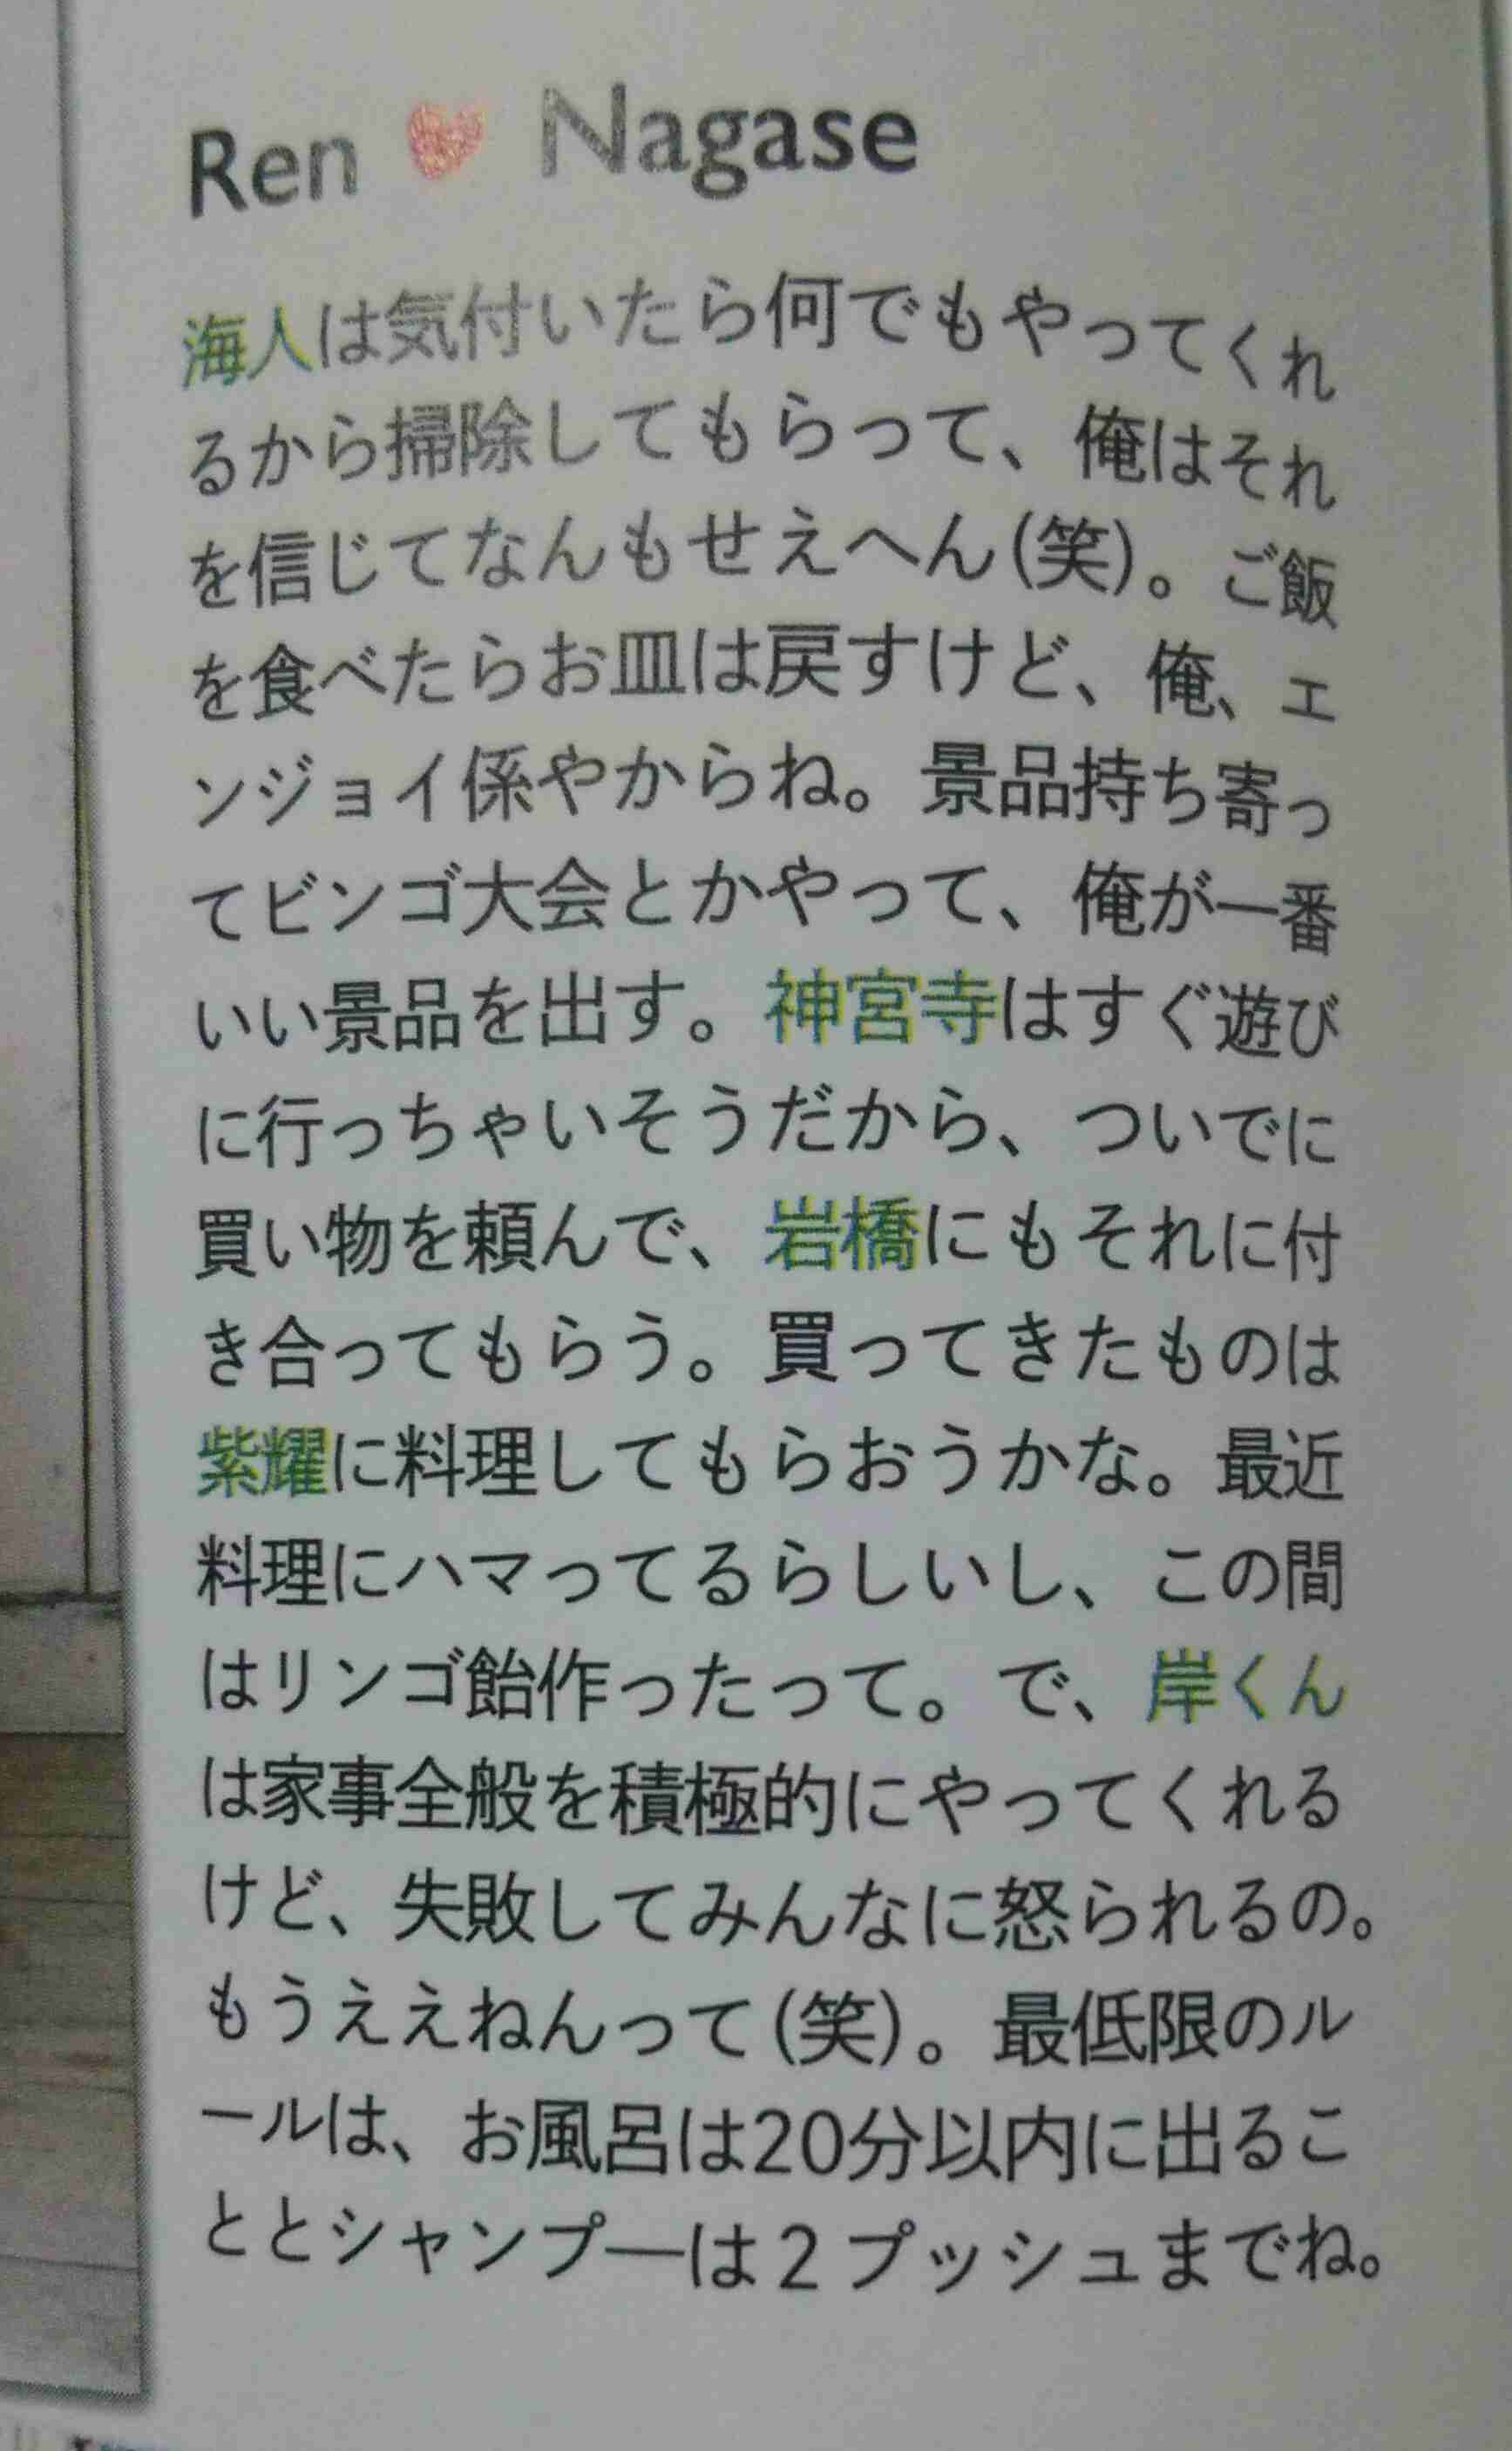 Ren ♥ Nagase
海人は気付いたら何でもやってくれ
るから掃除してもらって、俺はそれ
を信じてなんもせえへん(笑)。ご飯
を食べたらお皿は戻すけど、俺、エ
ンジョイ係やからね。景品持ち寄っ
てビンゴ大会とかやって、俺が一番
いい景品を出す。神宮寺はすぐ遊び
に行っちゃいそうだから、ついでに
買い物を頼んで、岩橋にもそれに付
き合ってもらう。買ってきたものは
紫耀に料理してもらおうかな。最近
料理にハマってるらしいし、この間
はリンゴ飴作ったって。で、岸くん
は家事全般を積極的にやってくれる
けど、失敗してみんなに怒られるの。
もうええねんって(笑)。最低限のル
ールは、お風呂は20分以内に出るこ
ととシャンプーは2プッシュまでね。